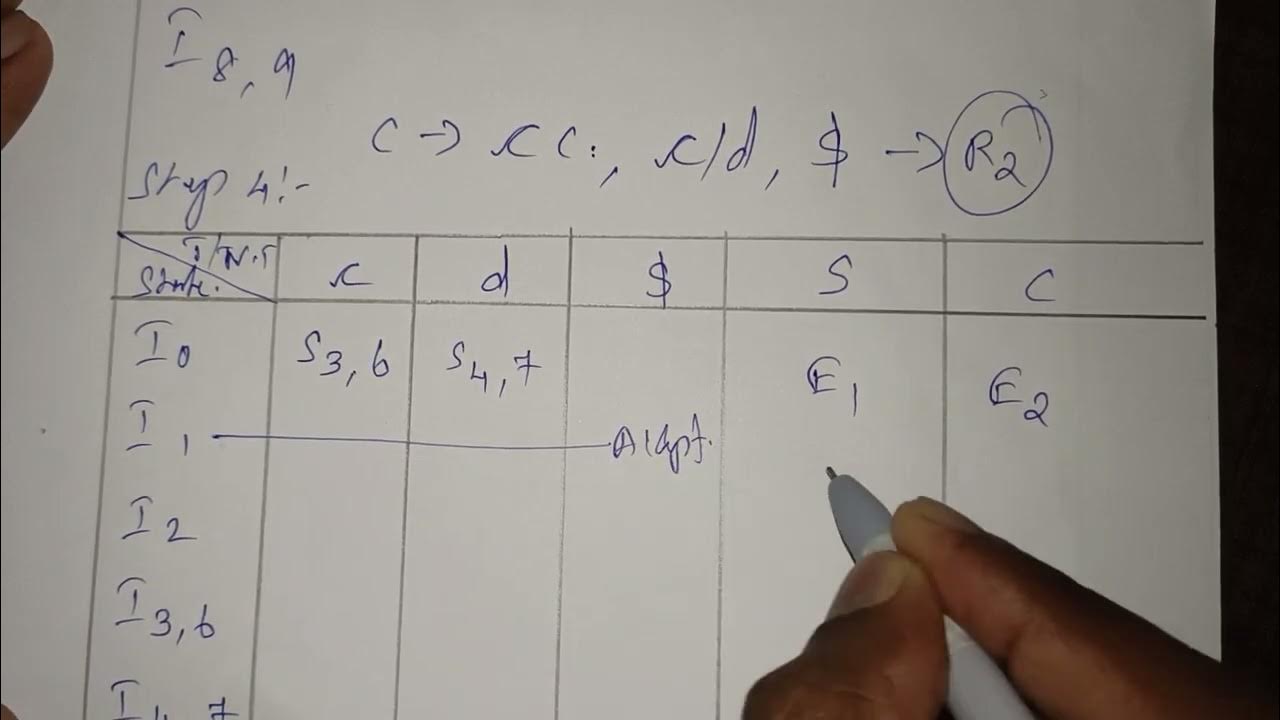 I8, 9
C → cC., c/d, $ → R2
Step 4:-
T/N.T
State. c d $ S C
I0 S3, 6 S4, 7 E1 E2
I1 Accept.
I2
I3, 6
I4, 7